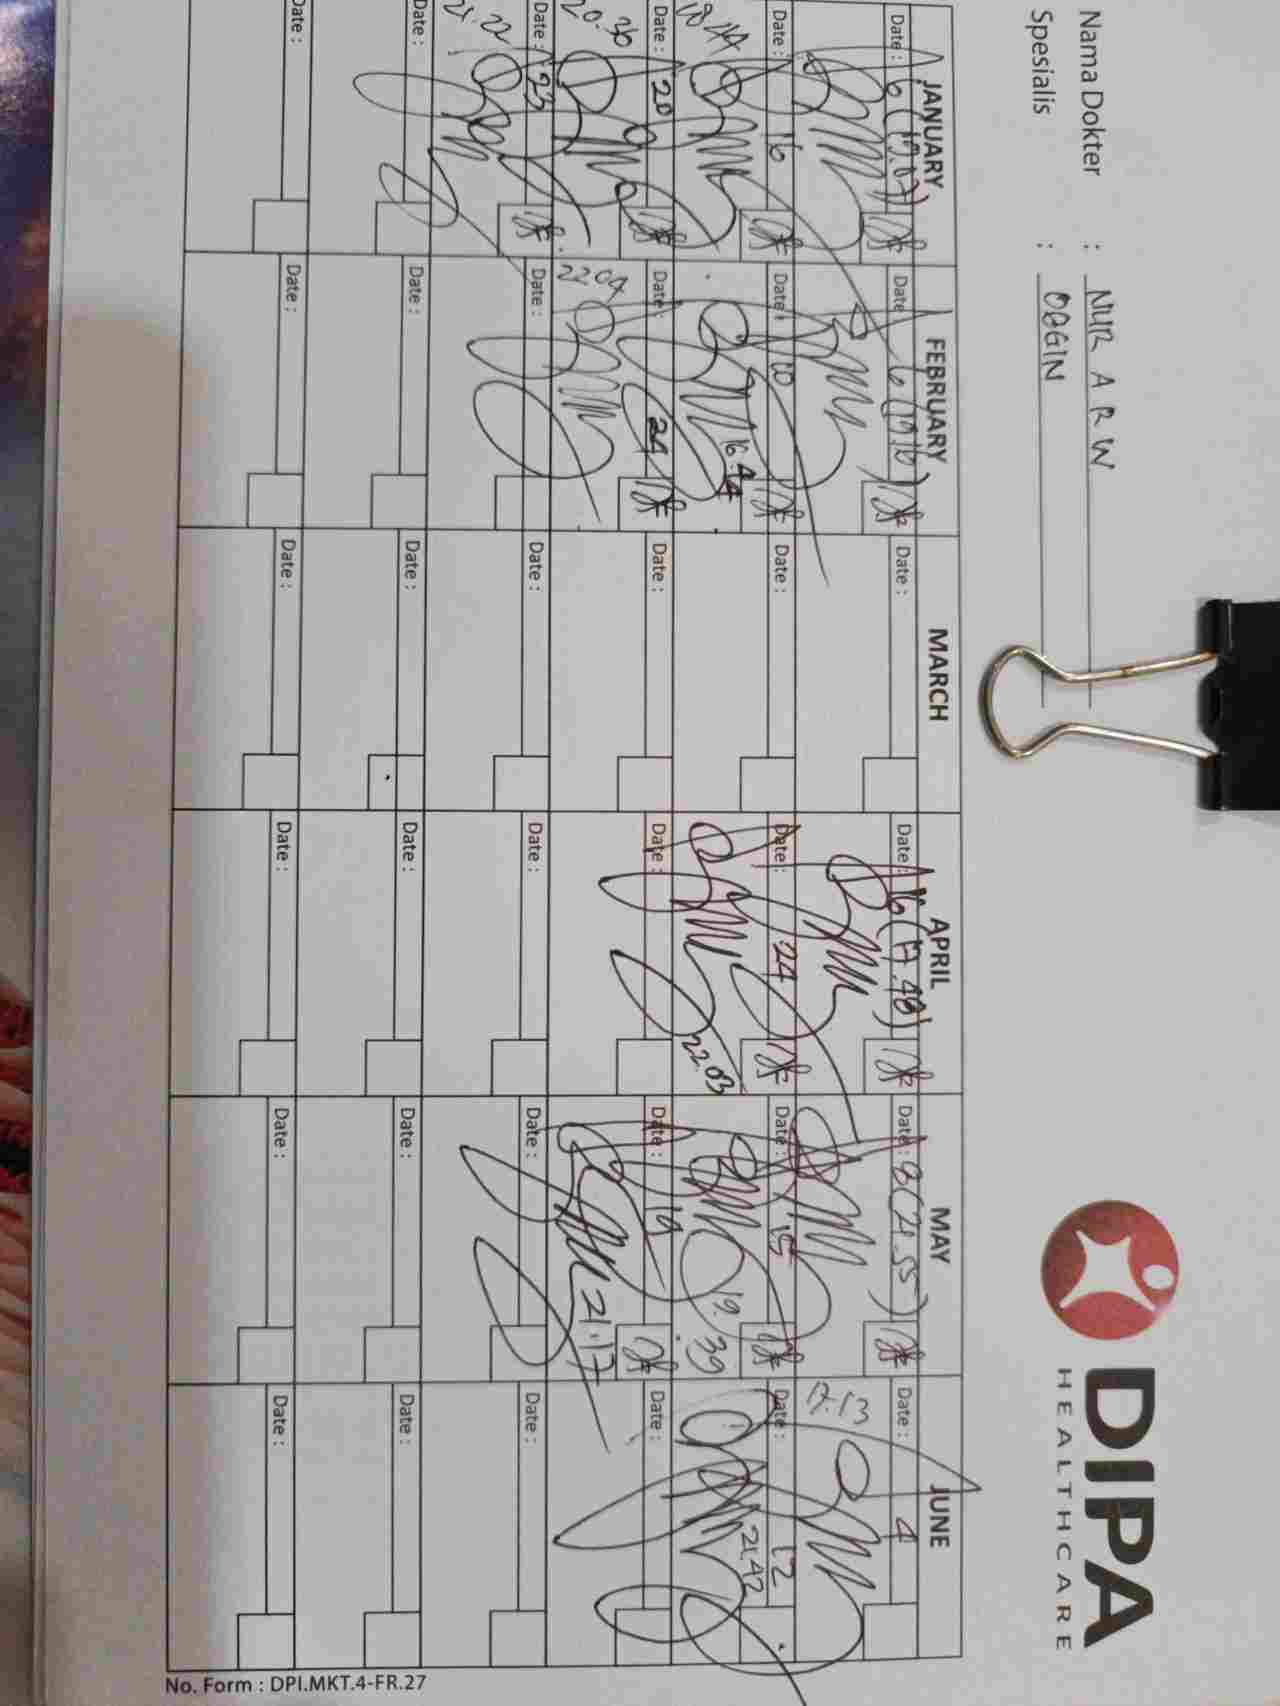 DIPA
HEALTHCARE
Nama Dokter : NUR A R W
Spesialis : OBGIN
JANUARY FEBRUARY MARCH APRIL MAY JUNE
Date : 6 (19.07) Date : 6 (19.16) Date : Date : 16 (17.48) Date : 8 (21.55) Date : 4
17.13
Date : 16 Date : 10 Date : Date : 24 Date : 15 Date : 12
18.44 16.44 22.03 19.39 21.42
Date : 20 Date : 24 Date : Date : Date : 19 Date :
20.36 22.04 21.17
Date : 23 Date : Date : Date : Date : Date :
Date : Date : Date : Date : Date : Date :
Date : Date : Date : Date : Date : Date :
No. Form : DPI.MKT.4-FR.27